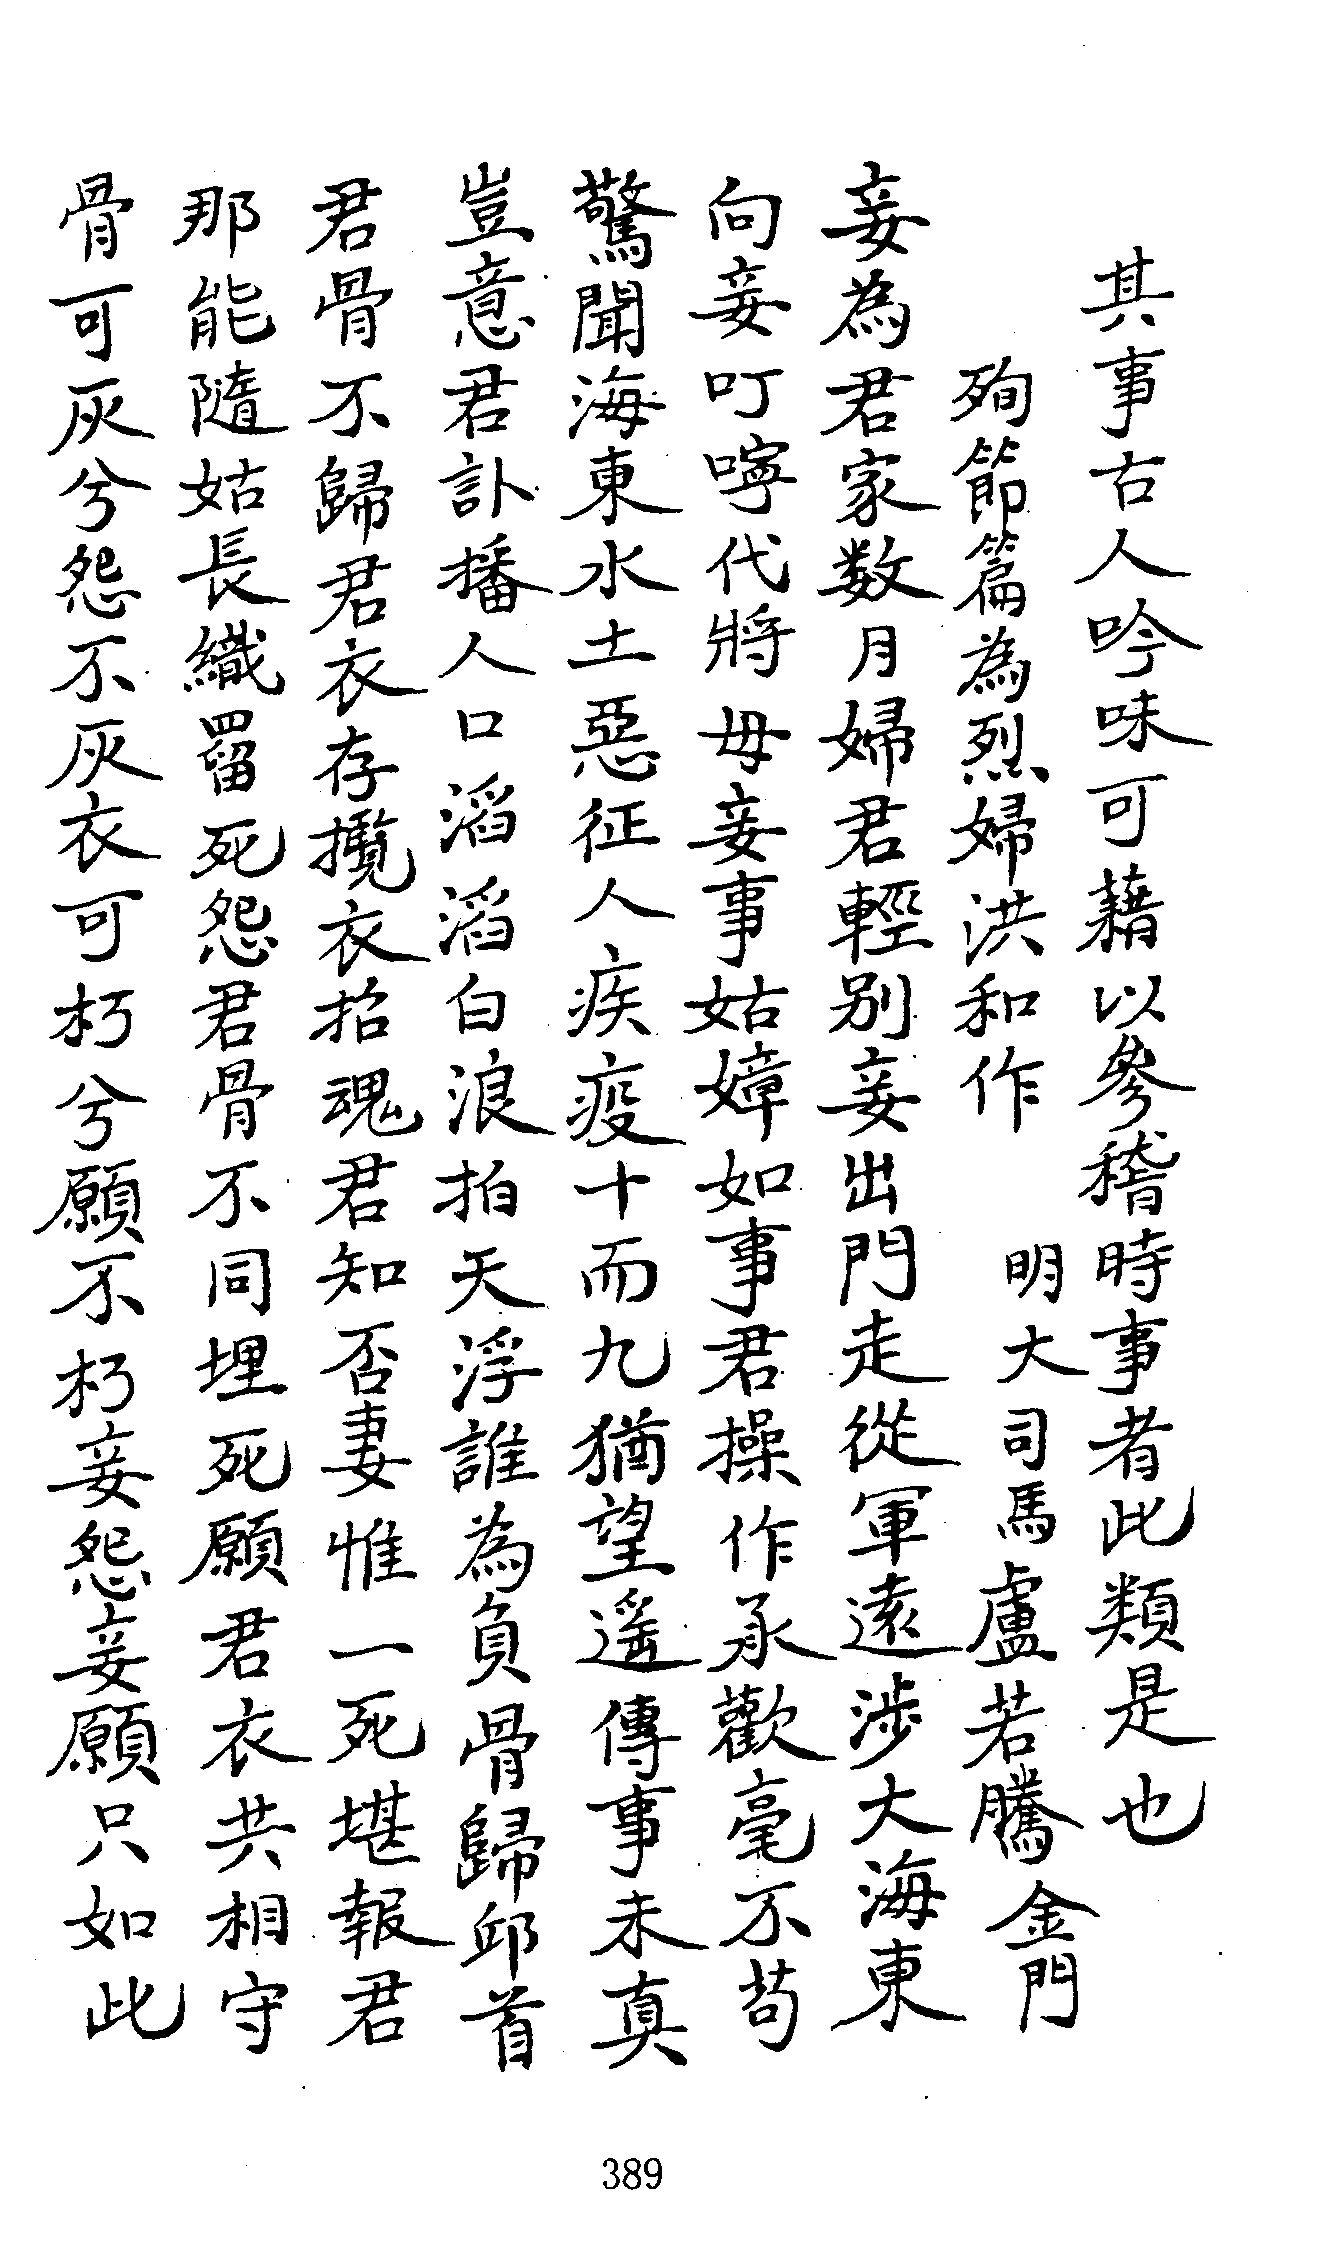 其事古人吟味可藉以參稽時事者此類是也
殉節篇為烈婦洪和作　明大司馬盧若騰金門
妾為君家数月婦君輕別妾出門走從軍遠涉大海東
向妾叮嚀代將母妾事姑嫜如事君操作承歡毫不苟
驚聞海東水土惡征人疾疫十而九猶望遙傳事未真
豈意君訃播人口滔滔白浪拍天浮誰為負骨歸邱首
君骨不歸君衣存攬衣招魂君知否妻惟一死堪報君
那能隨姑長織罶死怨君骨不同埋死願君衣共相守
骨可灰兮怨不灰衣可朽兮願不朽妾怨妾願只如此
389